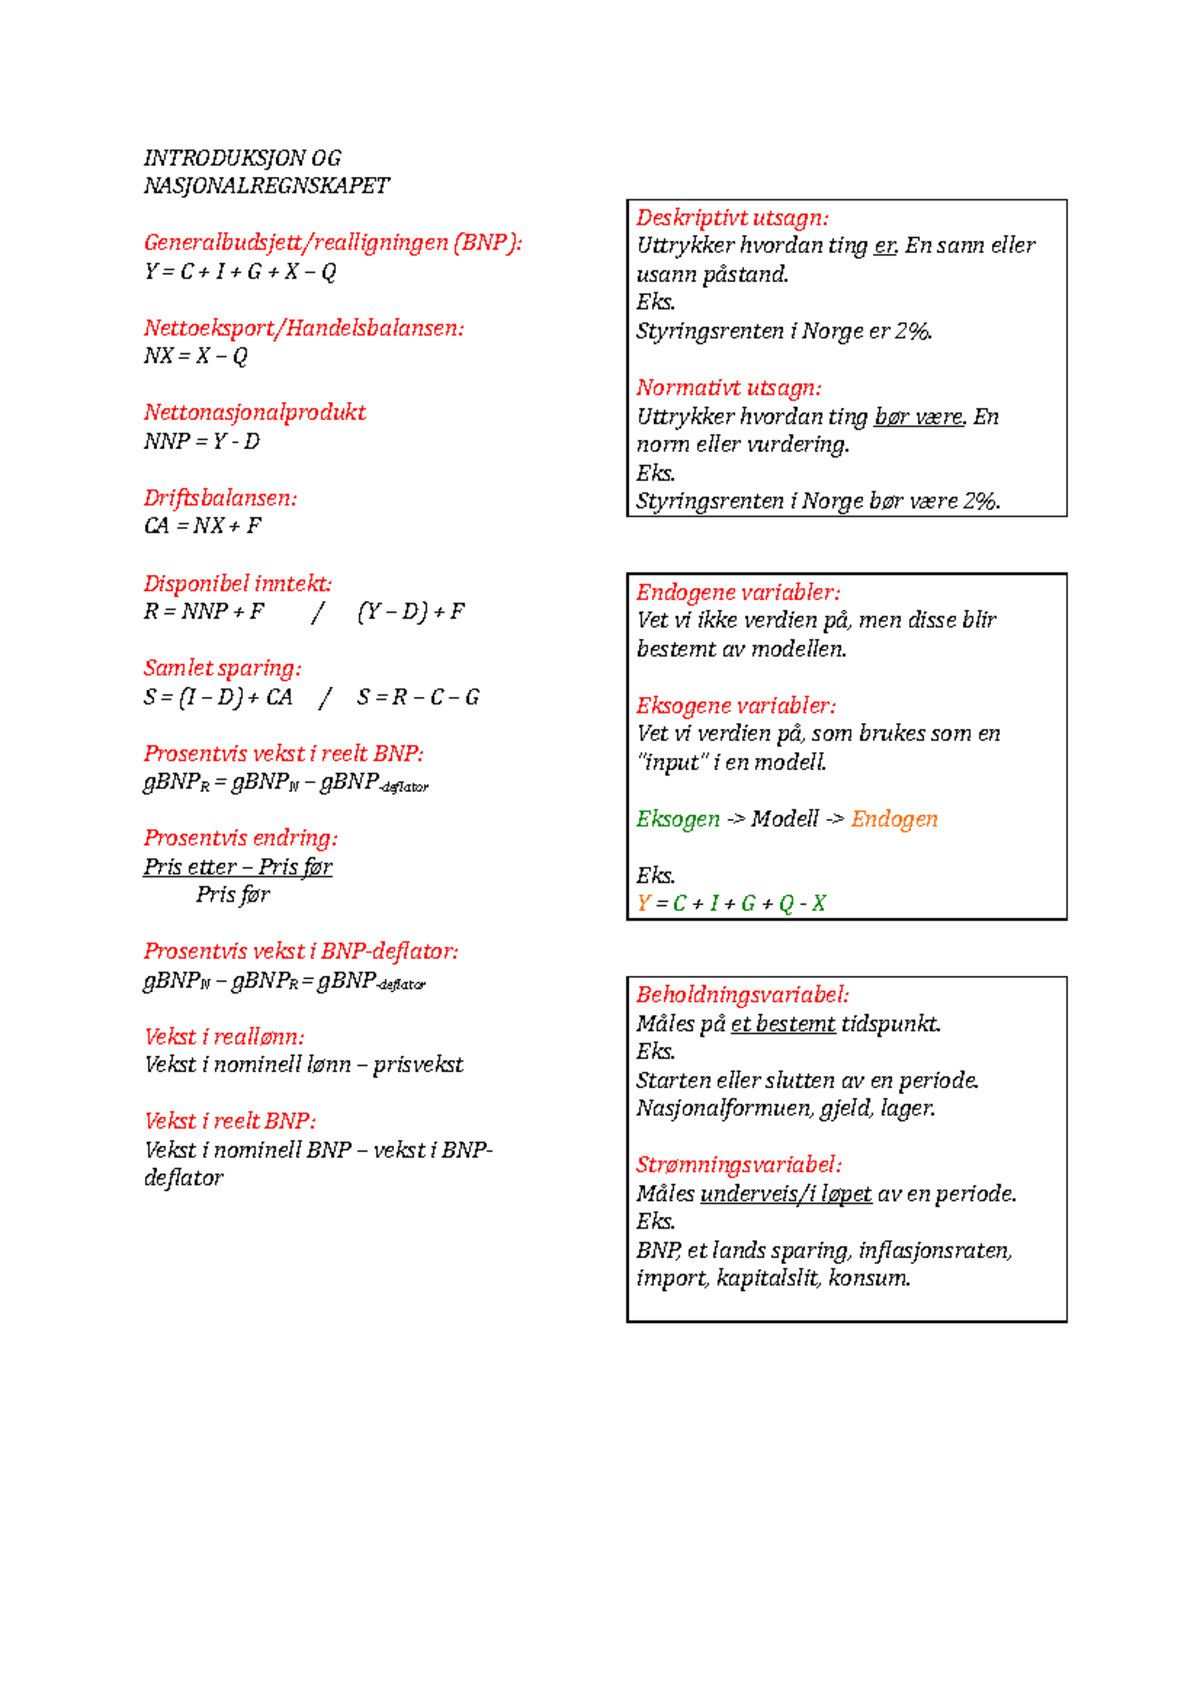 INTRODUKSJON OG
NASJONALREGNSKAPET
Generalbudsjett/realligningen (BNP):
Y = C + I + G + X – Q
Nettoeksport/Handelsbalansen:
NX = X – Q
Nettonasjonalprodukt
NNP = Y - D
Driftsbalansen:
CA = NX + F
Disponibel inntekt:
R = NNP + F / (Y – D) + F
Samlet sparing:
S = (I – D) + CA / S = R – C – G
Prosentvis vekst i reelt BNP:
gBNPR = gBNPN – gBNP-deflator
Prosentvis endring:
Pris etter – Pris før
Pris før
Prosentvis vekst i BNP-deflator:
gBNPN – gBNPR = gBNP-deflator
Vekst i reallønn:
Vekst i nominell lønn – prisvekst
Vekst i reelt BNP:
Vekst i nominell BNP – vekst i BNP-
deflator
Deskriptivt utsagn:
Uttrykker hvordan ting er. En sann eller
usann påstand.
Eks.
Styringsrenten i Norge er 2%.
Normativt utsagn:
Uttrykker hvordan ting bør være. En
norm eller vurdering.
Eks.
Styringsrenten i Norge bør være 2%.
Endogene variabler:
Vet vi ikke verdien på, men disse blir
bestemt av modellen.
Eksogene variabler:
Vet vi verdien på, som brukes som en
"input" i en modell.
Eksogen -> Modell -> Endogen
Eks.
Y = C + I + G + Q - X
Beholdningsvariabel:
Måles på et bestemt tidspunkt.
Eks.
Starten eller slutten av en periode.
Nasjonalformuen, gjeld, lager.
Strømningsvariabel:
Måles underveis/i løpet av en periode.
Eks.
BNP, et lands sparing, inflasjonsraten,
import, kapitalslit, konsum.